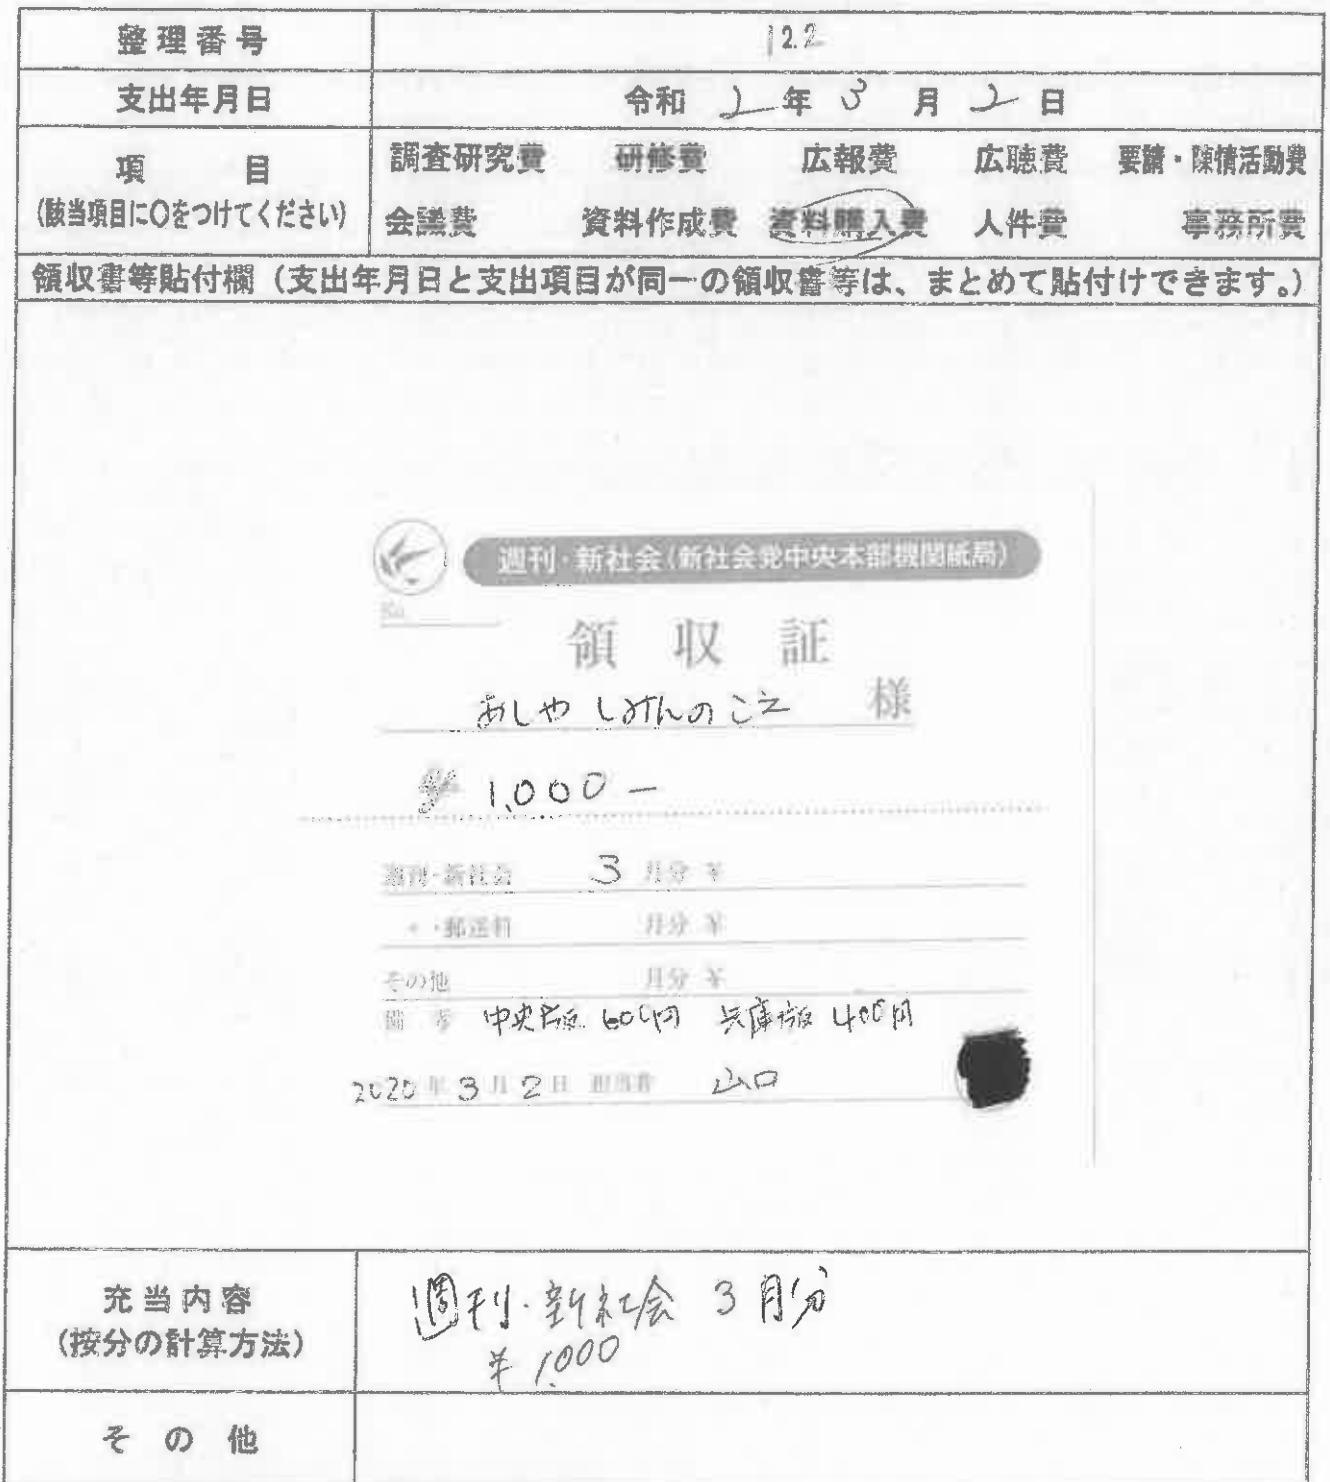 整理番号 12.2
支出年月日 令和 2 年 3 月 2 日
項 目 調査研究費 研修費 広報費 広聴費 要請・陳情活動費
(該当項目に○をつけてください) 会議費 資料作成費 資料購入費 人件費 事務所費
領収書等貼付欄（支出年月日と支出項目が同一の領収書等は、まとめて貼付けできます。）
週刊・新社会(新社会党中央本部機関紙局)
No.
領 収 証
あしや しみんのこえ 様
¥ 1,000 −
週刊・新社会 3 月分 ¥
〃 ・郵送料 月分 ¥
その他 月分 ¥
備 考 中央版 600円 兵庫版 400円
2020 年 3 月 2 日 担当者 山口
充当内容 週刊・新社会 3月分
(按分の計算方法) ¥ 1,000
そ の 他